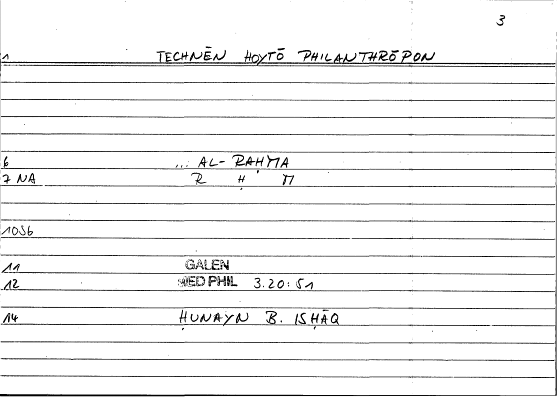 3
1 TECHNĒN HOYTŌ PHILANTHRŌPON
6 ... AL-RAḤMA
7 NA R Ḥ M
10S6
11 GALEN
12 MED PHIL 3.20:S1
14 ḤUNAYN B. ISḤĀQ